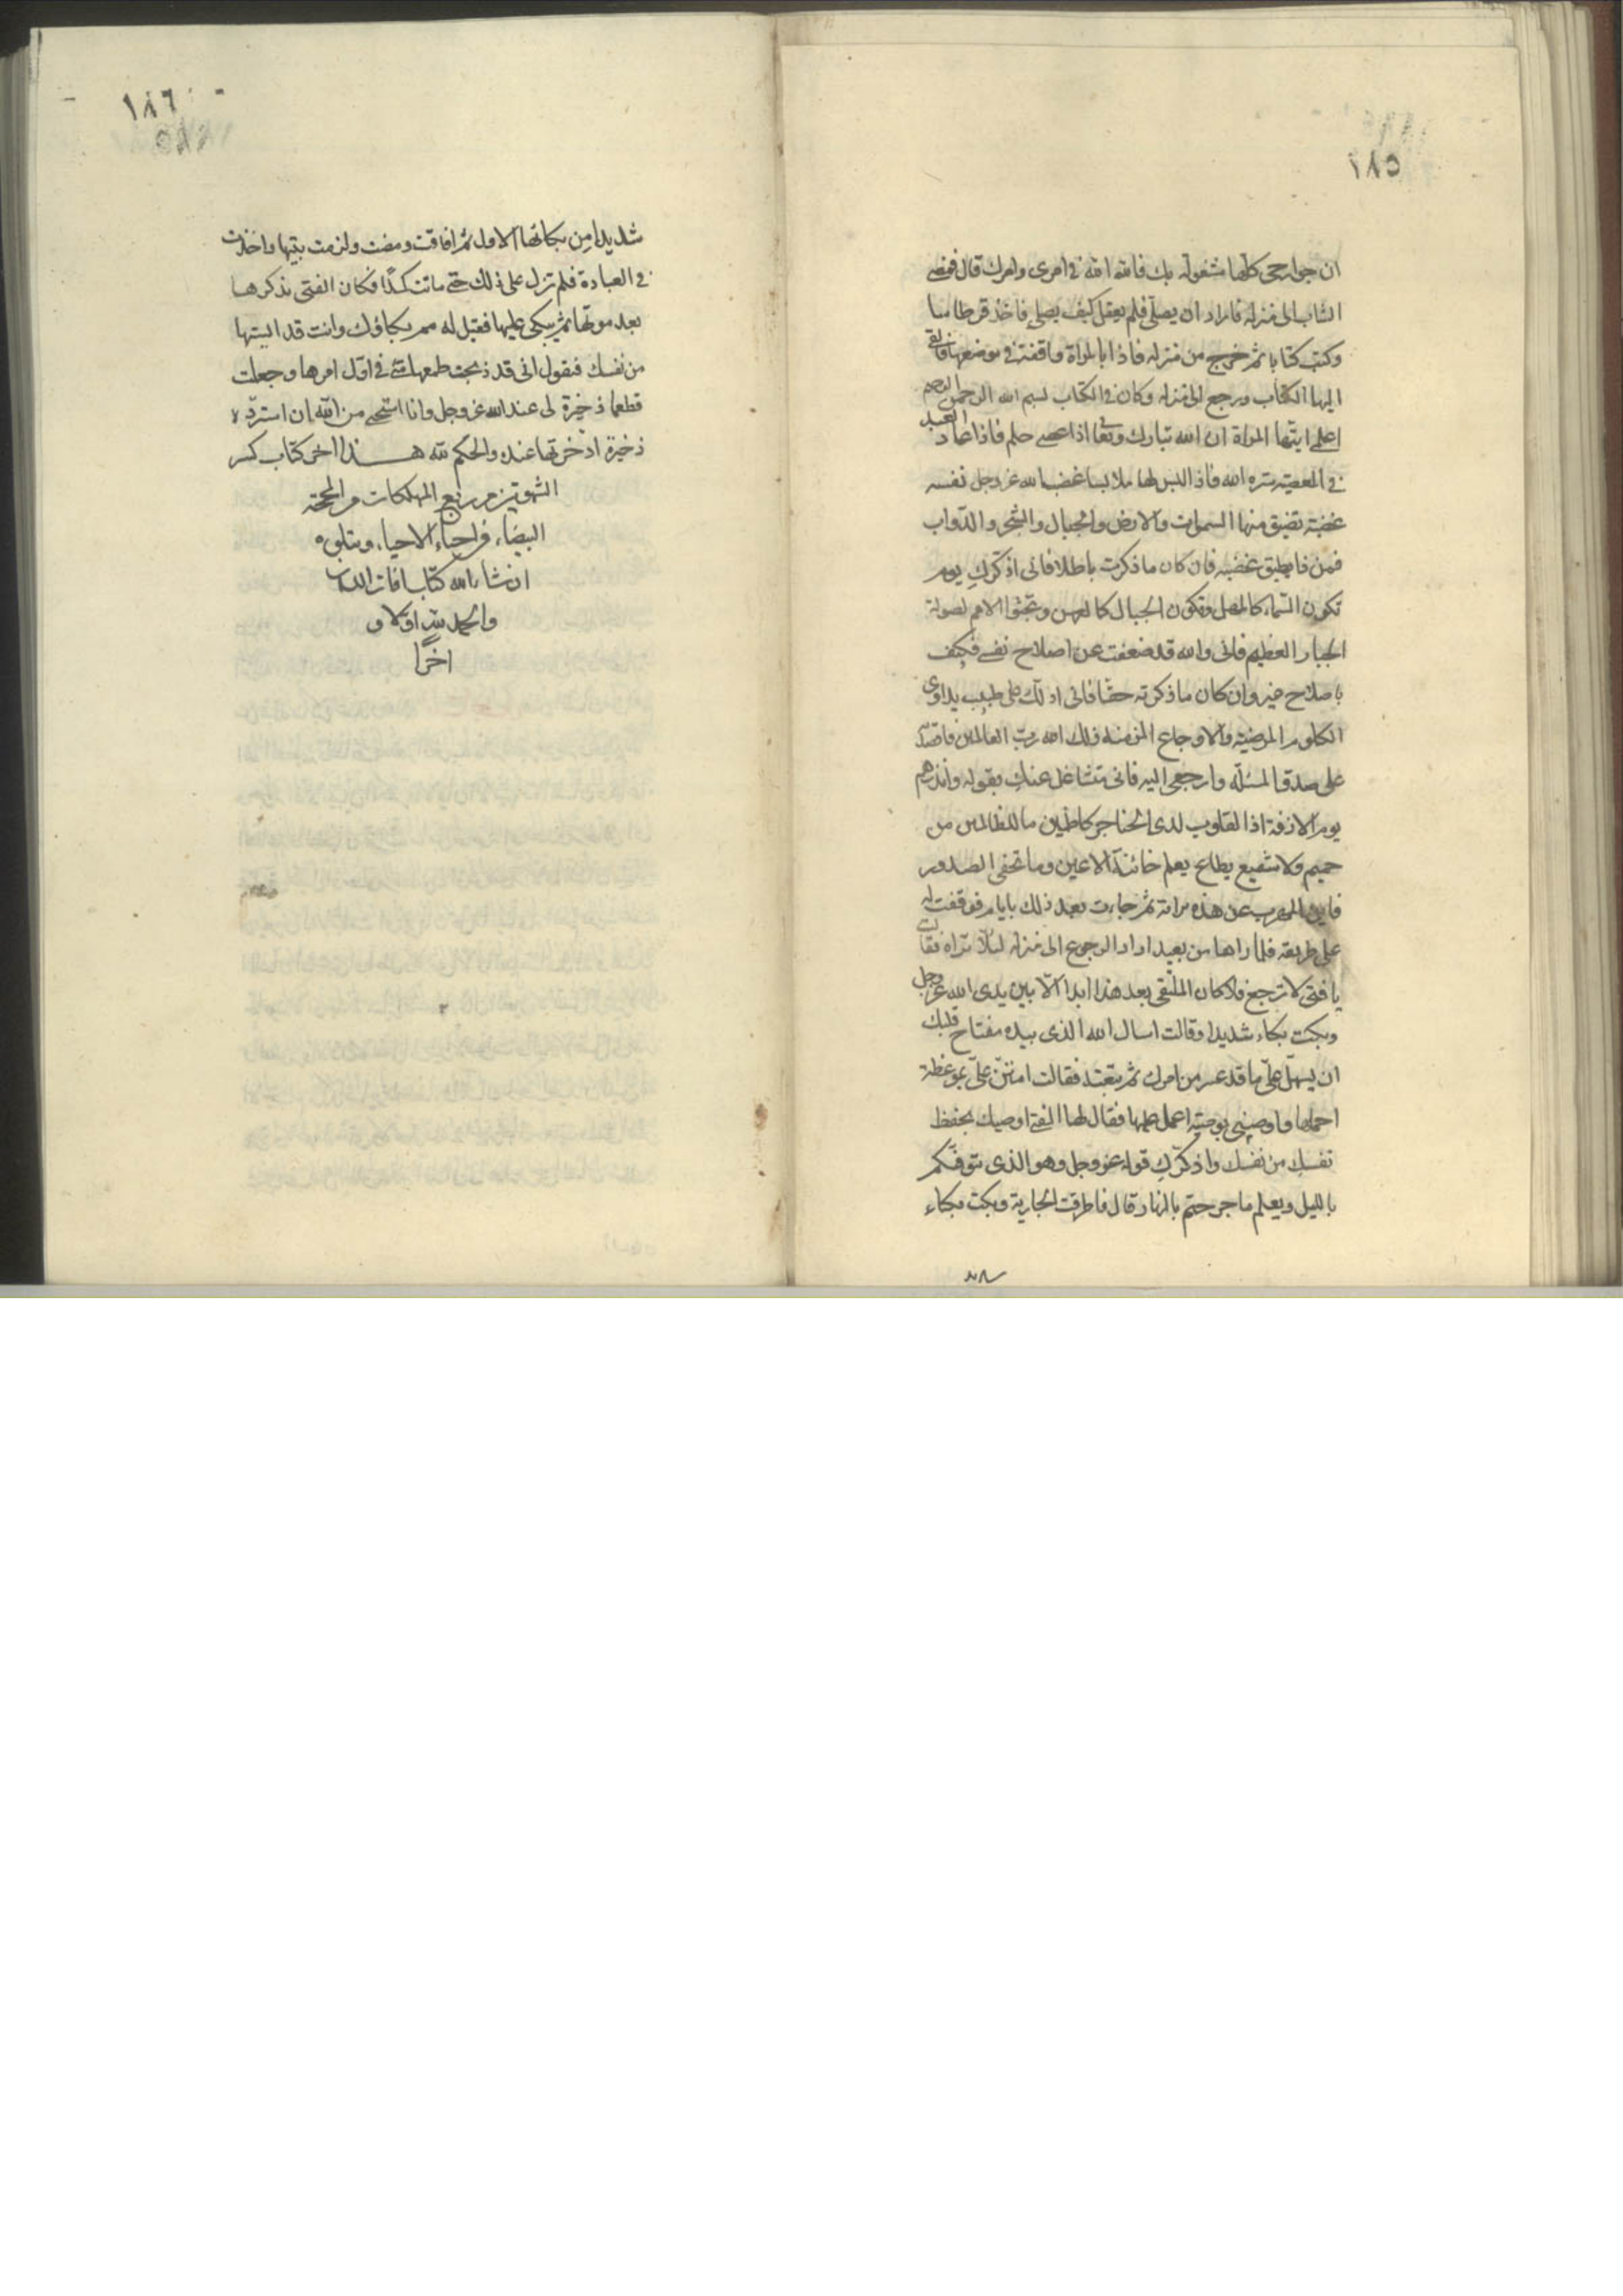 ١٨٥
ان جوارحى كلها مشغولة بك فالله الله فى امرى وامرك قال فمضى
الشاب الى منزله فاراد ان يصلى فلم يعقل كيف يصلى فاخذ قرطاسا
وكتب كتابا ثم خرج من منزله فاذا بالمراة واقفة فى موضعها فالقى
اليها الكتاب ورجع الى منزله وكان فى الكتاب بسم الله الرحمن الرحيم
اعلمى ايتها المراة ان الله تبارك وتعا اذا عصى حلم فاذا عاد العبد
فى المعصية ستره الله فاذا لبس لها ملابسها غضب الله عز وجل لنفسه
غضبة تضيق منها السموات والارض والجبال والشجر والدواب
فمن ذا يطيق غضبه فان كان ما ذكرت باطلا فانى اذكرك يوم
تكون السماء كالمهل وتكون الجبال كالعهن وتجثوا الامم لصولة
الجبار العظيم فانى والله قد ضعفت عن اصلاح نفسى فكيف
باصلاح غيرى وان كان ما ذكرته حقا فانى ادلك على طبيب يداوى
الكلوم المرضية والاوجاع المزمنة ذلك الله رب العالمين فاقصديه
على صدق المسئلة وارجعى اليه فانى متشاغل عنك بقوله وانذرهم
يوم الازفة اذا القلوب لدى الحناجر كاظمين ما للظالمين من
حميم ولا شفيع يطاع يعلم خائنة الاعين وما تخفى الصدور
فاين المهرب عن هذه الاية ثم جاءت بعد ذلك بايام فوقفت له
على طريقه فلما راها من بعيد اراد الرجوع الى منزله لئلا تراه فقالت
يا فتى لا ترجع فلا كان الملتقى بعد هذا ابدا الا بين يدى الله عز وجل
وبكت بكاء شديدا وقالت اسال الله الذى بيده مفتاح قلبك
ان يسهل على ما قد عسر من امرك ثم تبعته فقالت امنن على بموعظة
احملها واوصنى بوصية اعمل عليها فقال لها الفتى اوصيك بحفظ
نفسك من نفسك واذكرك قوله عز وجل وهو الذى يتوفكم
بالليل ويعلم ما جرحتم بالنهار قال فاطرقت الجارية وبكت بكاء
١٨٦
شديدا من بكائها الاول ثم افاقت ومضت ولزمت بيتها واخذت
فى العبادة فلم تزل على ذلك حتى ماتت كمدا فكان الفتى يذكرها
بعد موتها ثم يبكى عليها فقيل له مم بكاؤك وانت قد ايستها
من نفسك فيقول انى قد ذبحت طمعها منى فى اول امرها وجعلت
قطعها ذخيرة لى عند الله عز وجل وانا استحى من الله ان استرد
ذخيرة ادخرتها عنده والحكم لله هذا اخر كتاب كسر
الشهوتين من ربع المهلكات من المحجة
البيضاء فى احياء الاحياء ويتلوه
انشاء الله كتاب افات اللسان
والحمد لله اولا و
اخرًا